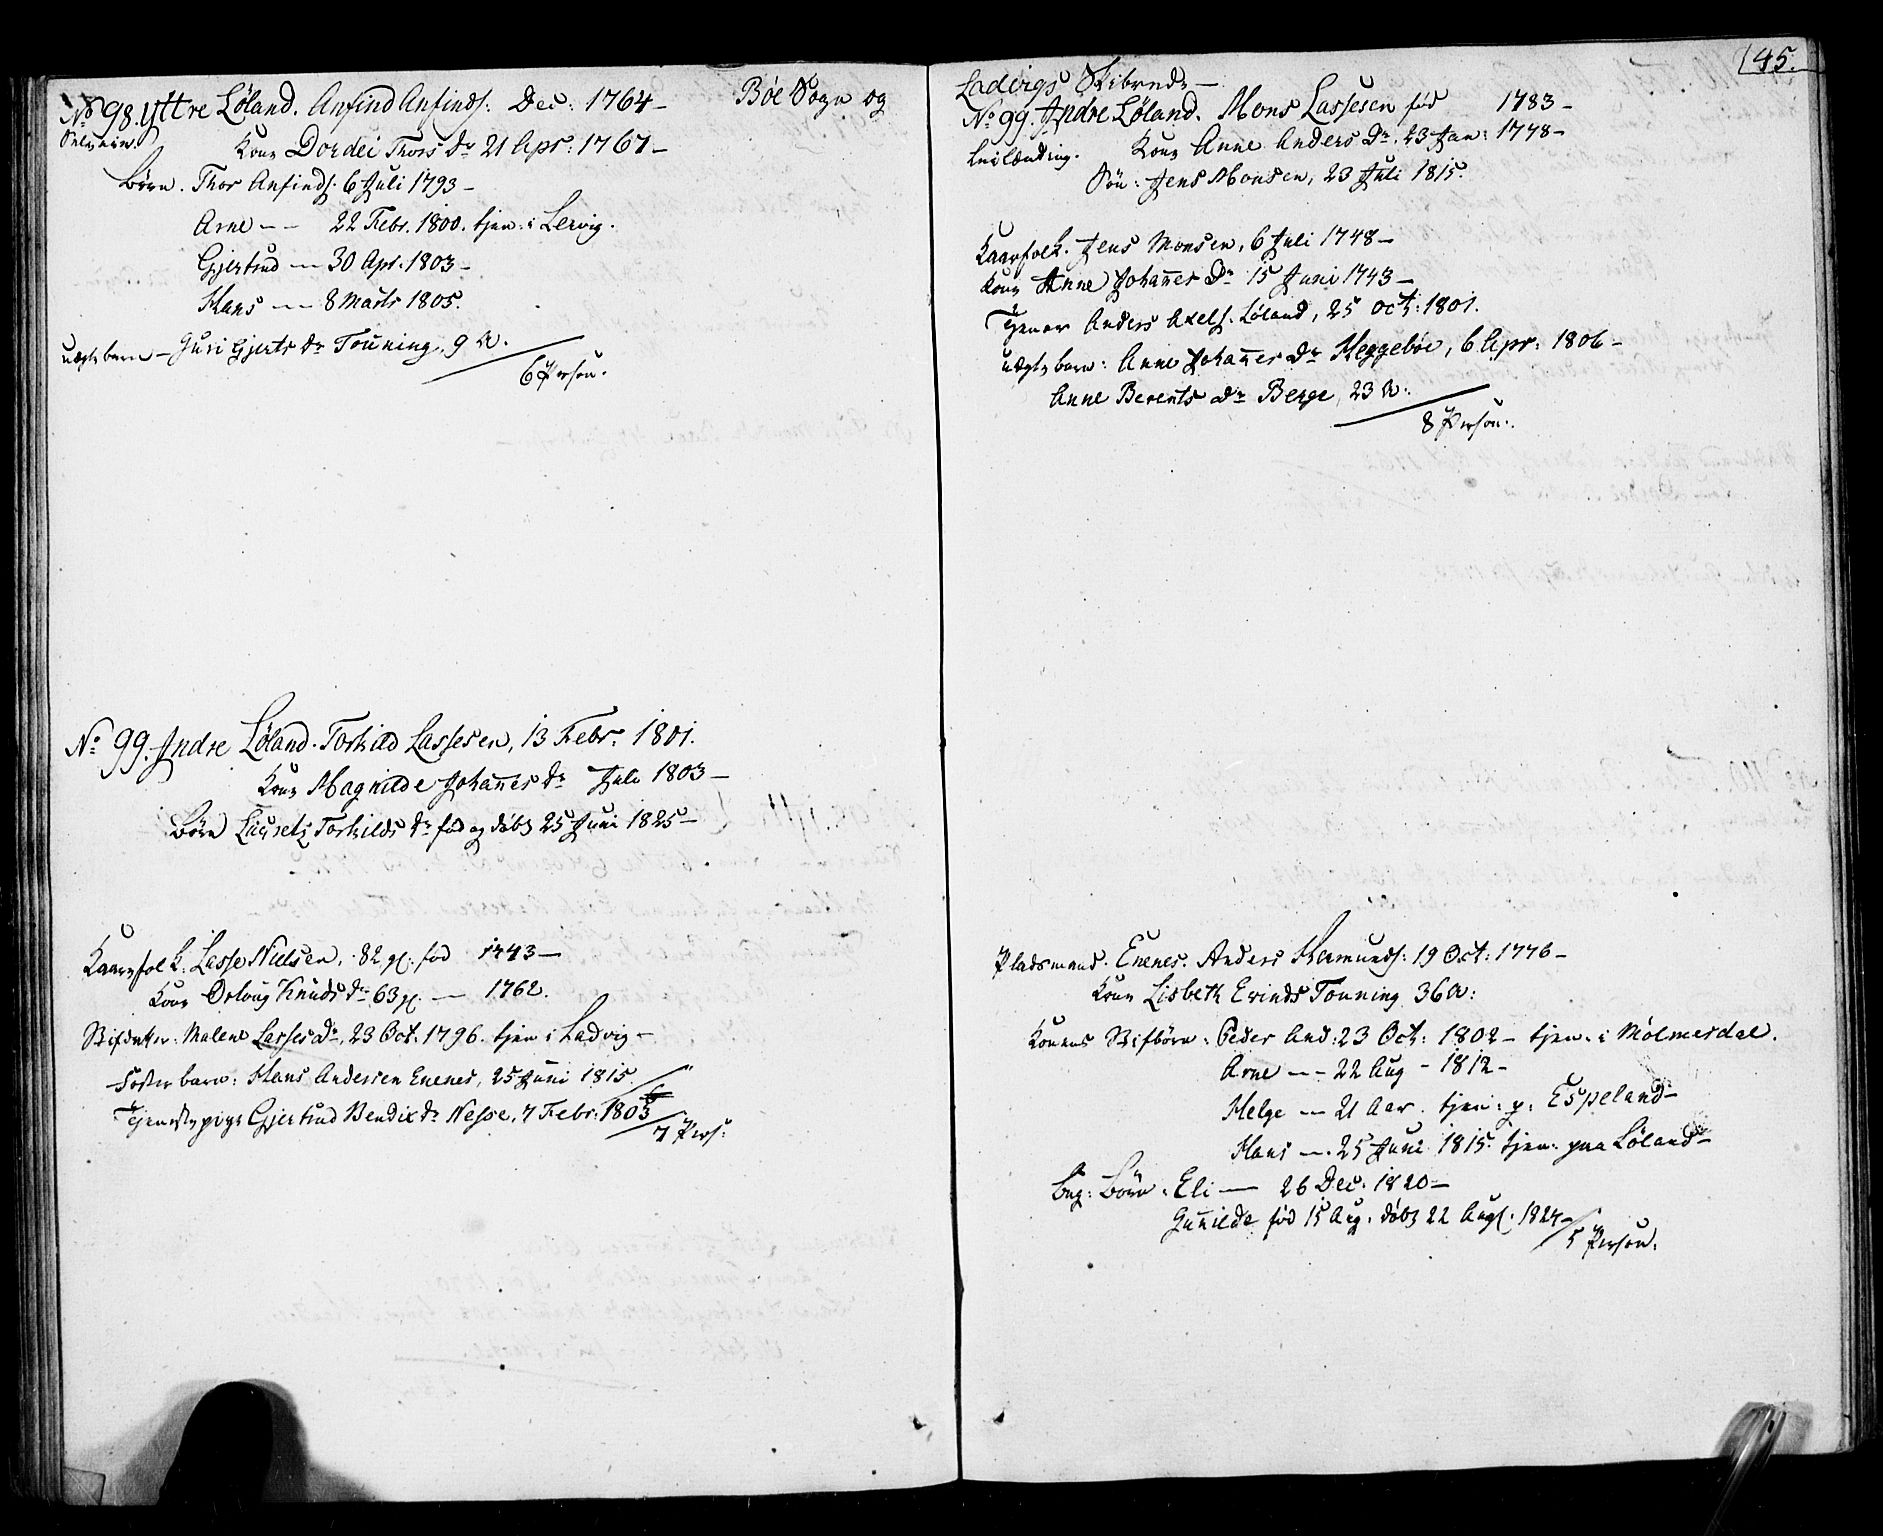 Bøe Sogn og
No 98. Yttre Løland. Anfind Anfinds: Dec: 1764 –
Selveier.
Kone Dordei Thors Dr 21 Apr: 1767 –
Børn. Thor Anfinds: 6 Juli 1793 –
Arne – – 22 Febr. 1800. tjen: i Lervig.
Gjertrud — 30 Apr. 1803 –
Hans — 8 Marts 1805.
uægte barn – Guri Gjerts Dr Touning, 9 A.
6 Person.
No 99. Indre Løland. Torkild Lassesen, 13 Febr: 1801.
Kone Magnilde Johannes Dr Juli 1803 –
Børn Lauretz Torkilds Dr fød og døbt 25 Juni 1825 –
Kaarfolk: Lasse Nielsen, 82 gl: fød 1743 –
Kone Orloug Knuds Dr 63 gl. — 1762.
Stifdatter: Malene Lasses Dr, 23 Oct. 1796. tjen i Ladvig –
Foster barn: Hans Andersen Enenes, 25 Juni 1815.
Tjeneste pige Gjertrud Bendix Dr Nesse, 7 Febr: 1803
7 Pers:
45.
Ladvigs Skibrede –
No 99. Indre Løland. Mons Lassesen fød 1783 –
Leilænding. Kone Anne Anders Dr. 23 Jan: 1778 –
Søn: Jens Monsen, 23 Juli 1815.
Kaarfolk. Jens Monsen, 6 Juli 1748 –
Kone Anne Johannes Dr 15 Juni 1743 –
Tjener Anders Axels: Løland, 25 Oct: 1801.
uægte barn: Anne Johannes Dr Heggebøe, 6 Apr: 1806 –
Anne Berents Dr Berge, 23 A:
8 Person:
Pladsmand. Enenes. Anders Hermunds: 19 Oct: 1776 –
Kone Lisbeth Evinds Touning 36 A:
Konens Stifbørn: Peder And: 23 Oct: 1802 – tjen: i Mølmesdal.
Arne – – 22 Aug – 1812 –
Helge — 21 Aar. tjen: p: Espeland –
Hans —. 25 Juni 1815. tjen: paa Løland –
beg: Børn: Eli — 26 Dec: 1820 –
Gunilde fød 15 Aug: døbt 22 Aug: 1824 –
5 Person.